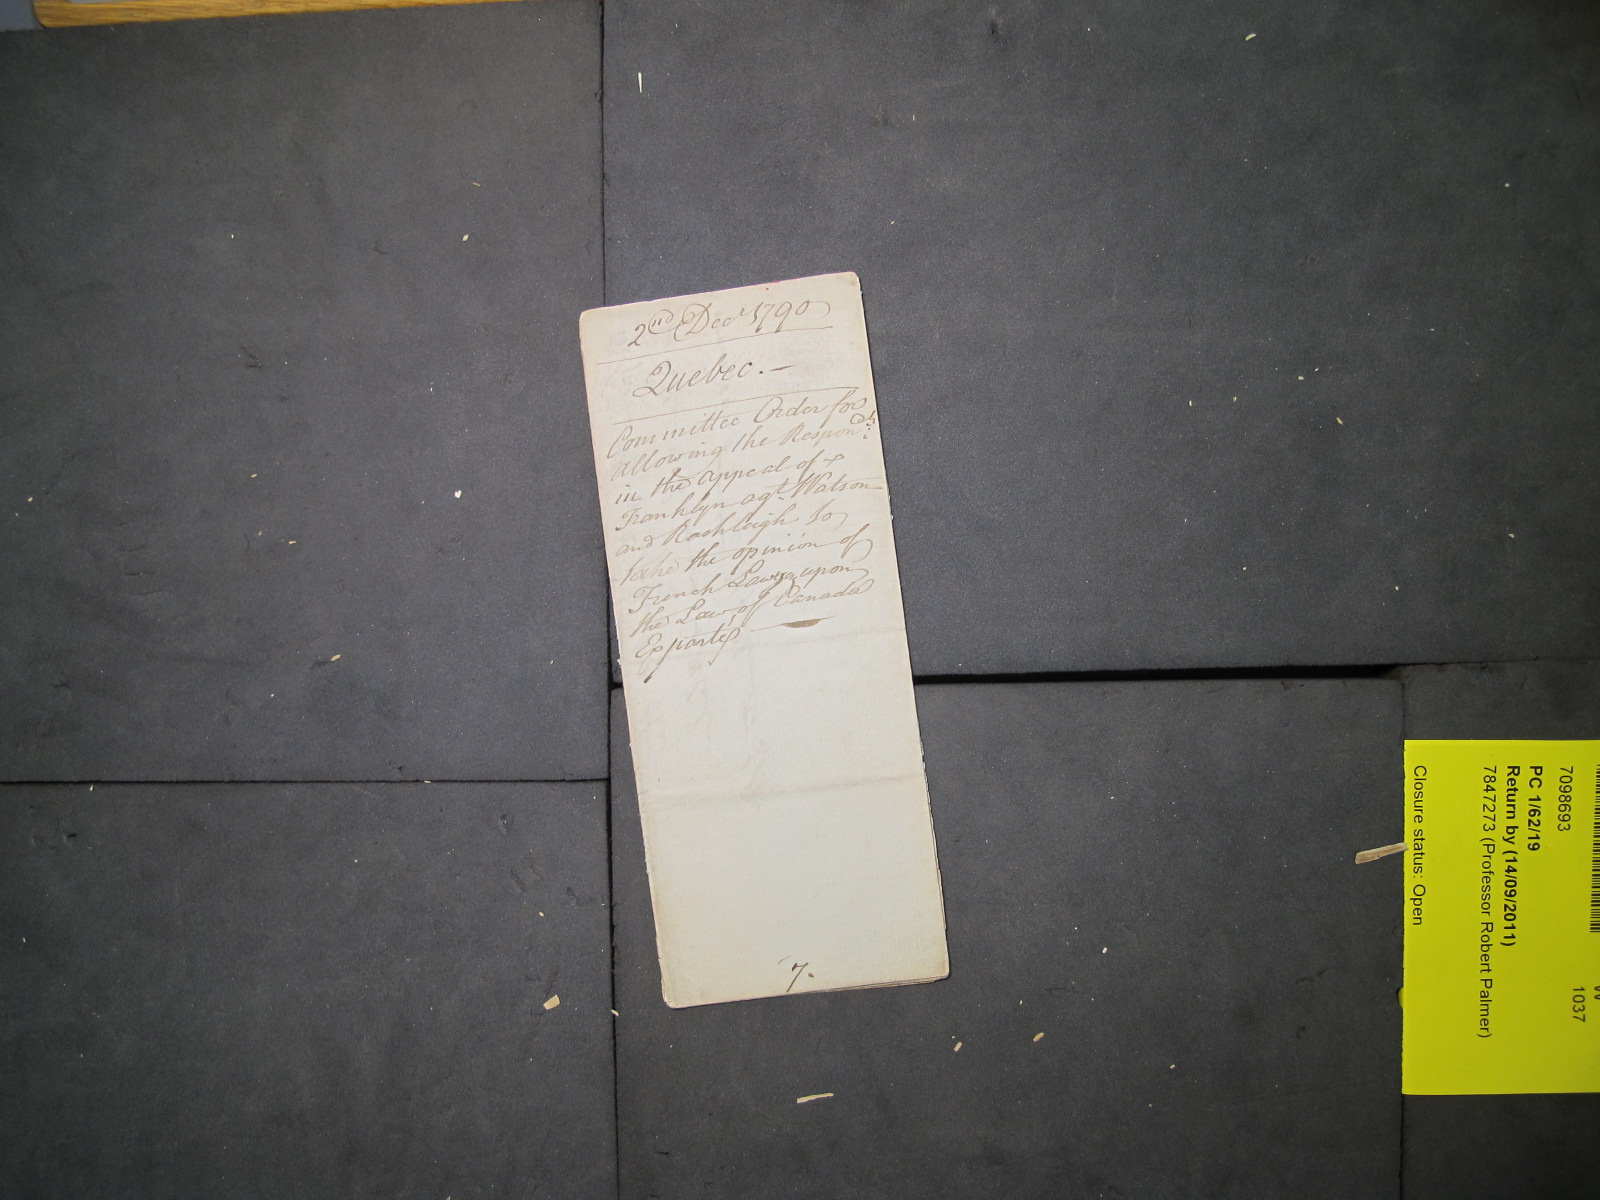 2nd Decr 1790
Quebec. —
Committee Order for
allowing the Respondts:
in the appeal of
Franklyn agt. Watson
and Rashleigh to
take the opinion of
French Lawyrs upon
the Law of Canada
Exparte
7.
7098693
1037
PC 1/62/19
Return by (14/09/2011)
7847273 (Professor Robert Palmer)
Closure status: Open